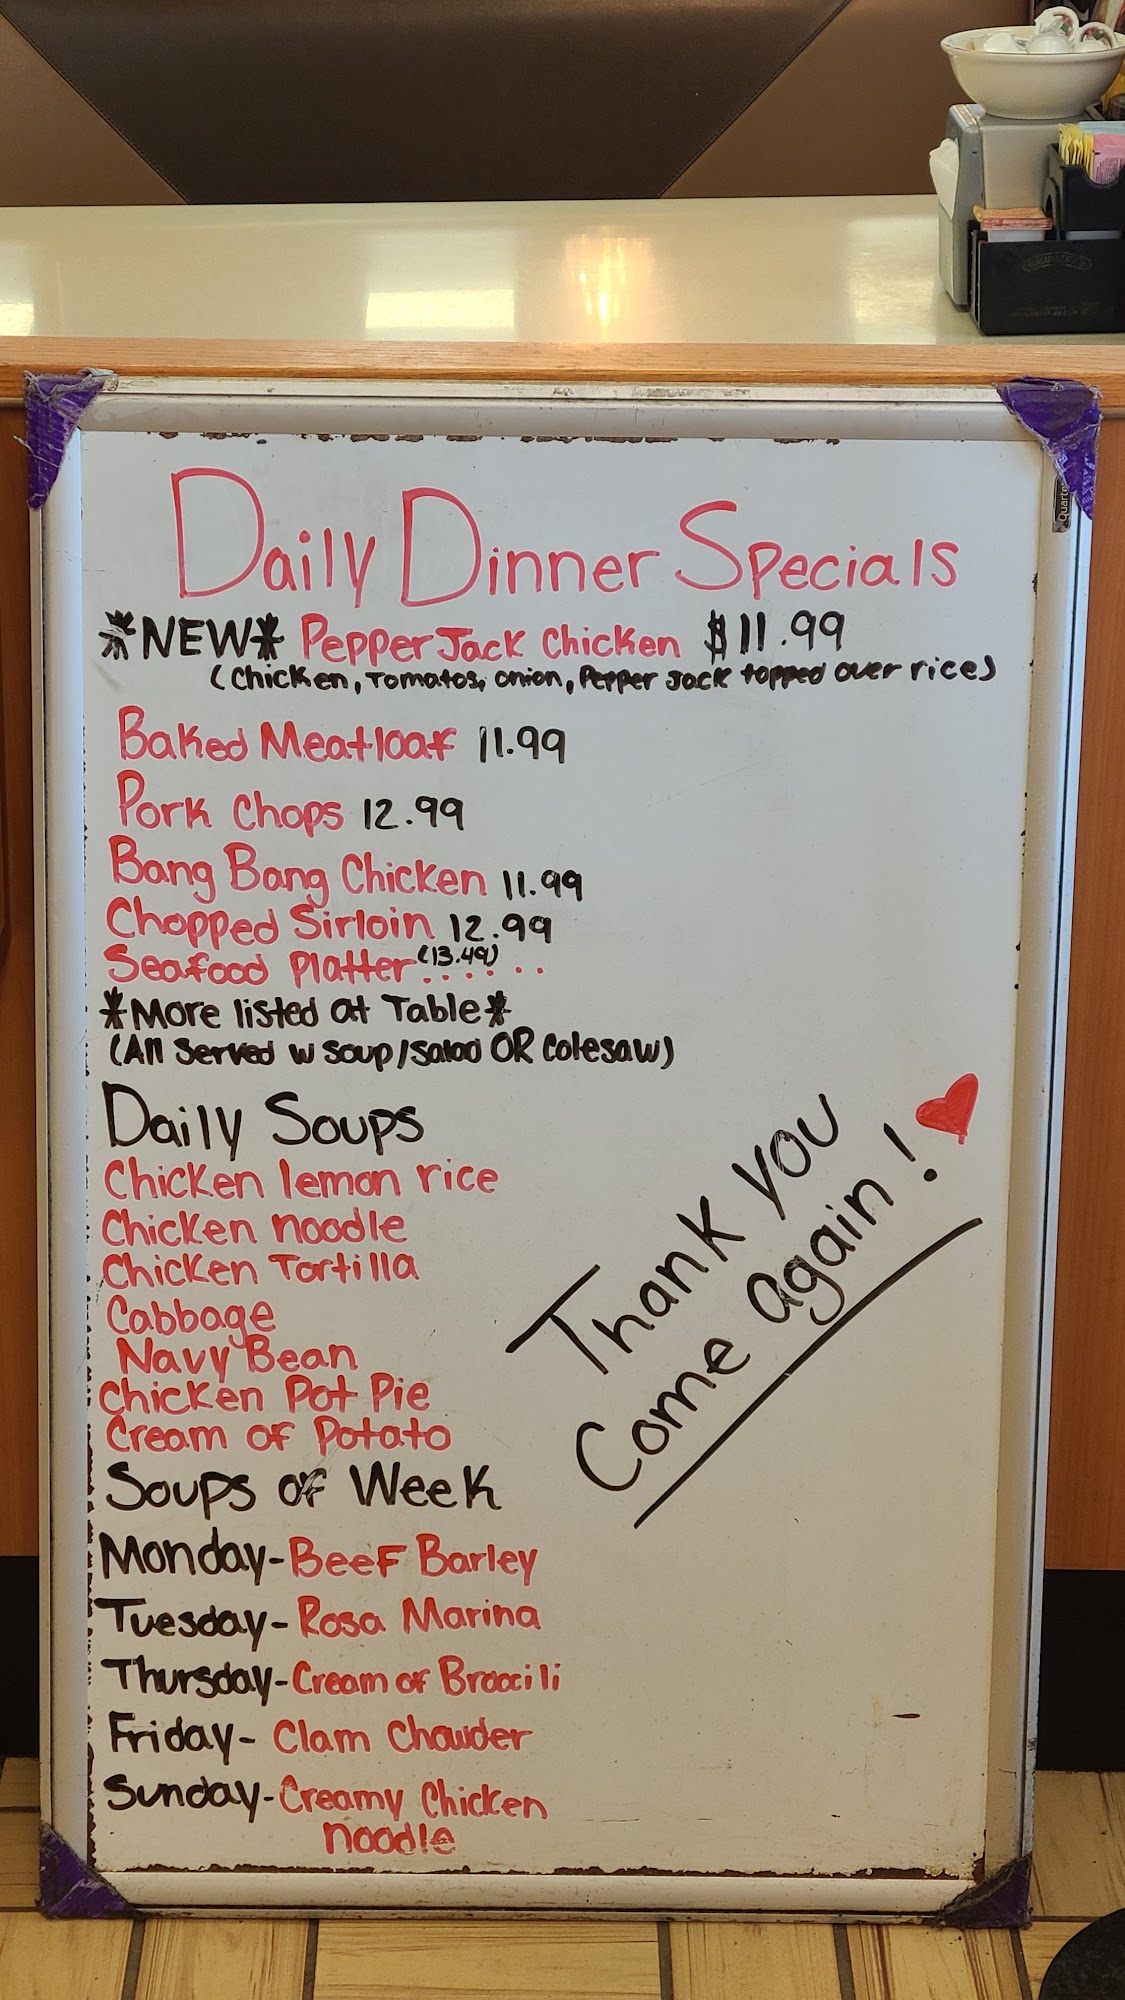 Daily Dinner Specials
*NEW* Pepper Jack Chicken $11.99
(Chicken, Tomatos, onion, Pepper Jack topped over rice)
Baked Meatloaf 11.99
Pork Chops 12.99
Bang Bang Chicken 11.99
Chopped Sirloin 12.99
Seafood Platter (13.49)......
*More listed at Table*
(All Served w soup/salad OR Colesaw)
Daily Soups
Chicken lemon rice
Chicken noodle
Chicken Tortilla
Cabbage
Navy Bean
Chicken Pot Pie
Cream of Potato
Thank you
Come again!
Soups of Week
Monday-Beef Barley
Tuesday-Rosa Marina
Thursday-Cream of Broccili
Friday-Clam Chowder
Sunday-Creamy Chicken
noodle